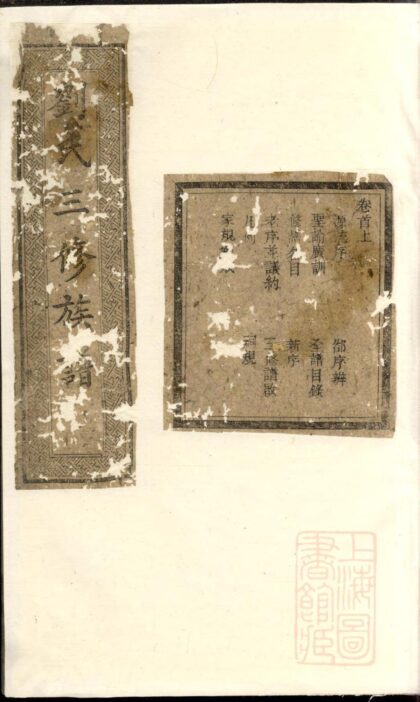 卷首上
源流序 序辨
聖諭廣訓 全譜目錄
修譜目 新序
老序并議約 三修譜啟
凡例 祠規
家規
劉氏三修族譜
上海圖書館藏